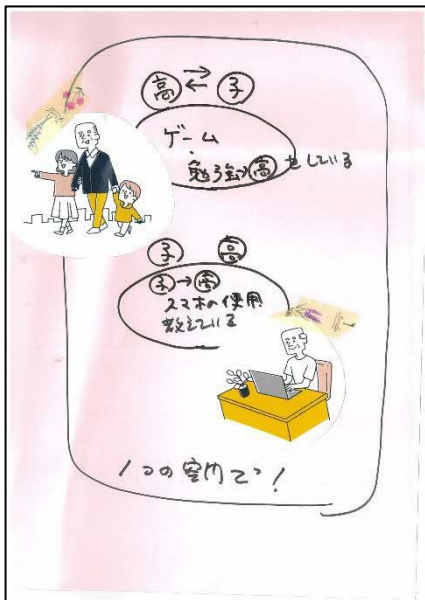 高 ⇄ 子
ゲーム
・
勉強→高をしている
子 高
子→高
スマホの使用
教えている
1つの室内で!